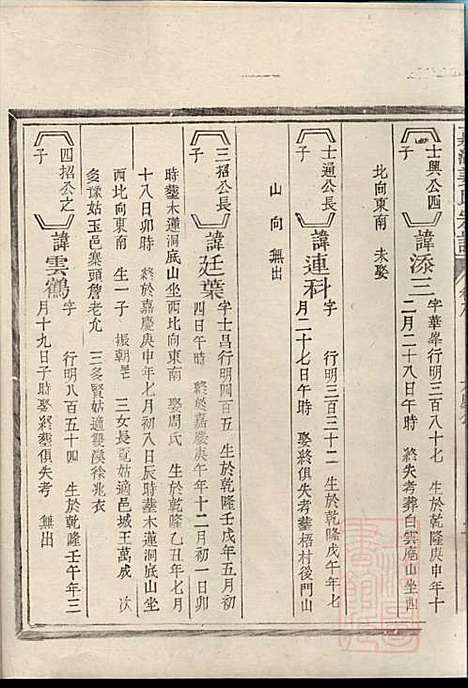 士興公四
子
諱添三
字華峯行明三百八十七 生於乾隆庚申年十
二月二十八日午時 終失考葬白雲庵山坐四
北向東南 未娶
士通公長
子
諱連科
字 行明三百三十二 生於乾隆戊午年七
月二十七日午時 娶終俱失考𡒉梧村後門山
山向 無出
三招公長
子
諱廷葉
字士昌行明四百五 生於乾隆壬戌年五月初
四日午時 終於嘉慶庚午年十二月初一日卯
時𡒉木蓮洞底山坐西北向東南 娶周氏 生於乾隆乙丑年七月
十八日卯時 終於嘉慶庚申年七月初八日辰時𡒉木蓮洞底山坐
西北向東南 生一子 振朝 三女長 姑適邑城王萬成 次
姑玉邑寨頭詹老允 三冬賢姑適 溪徐兆衣
四招公之
子
諱雲鶴
字 行明八百五十四 生於乾隆壬午年三
月十九日子時娶終𡒉俱失考 無出